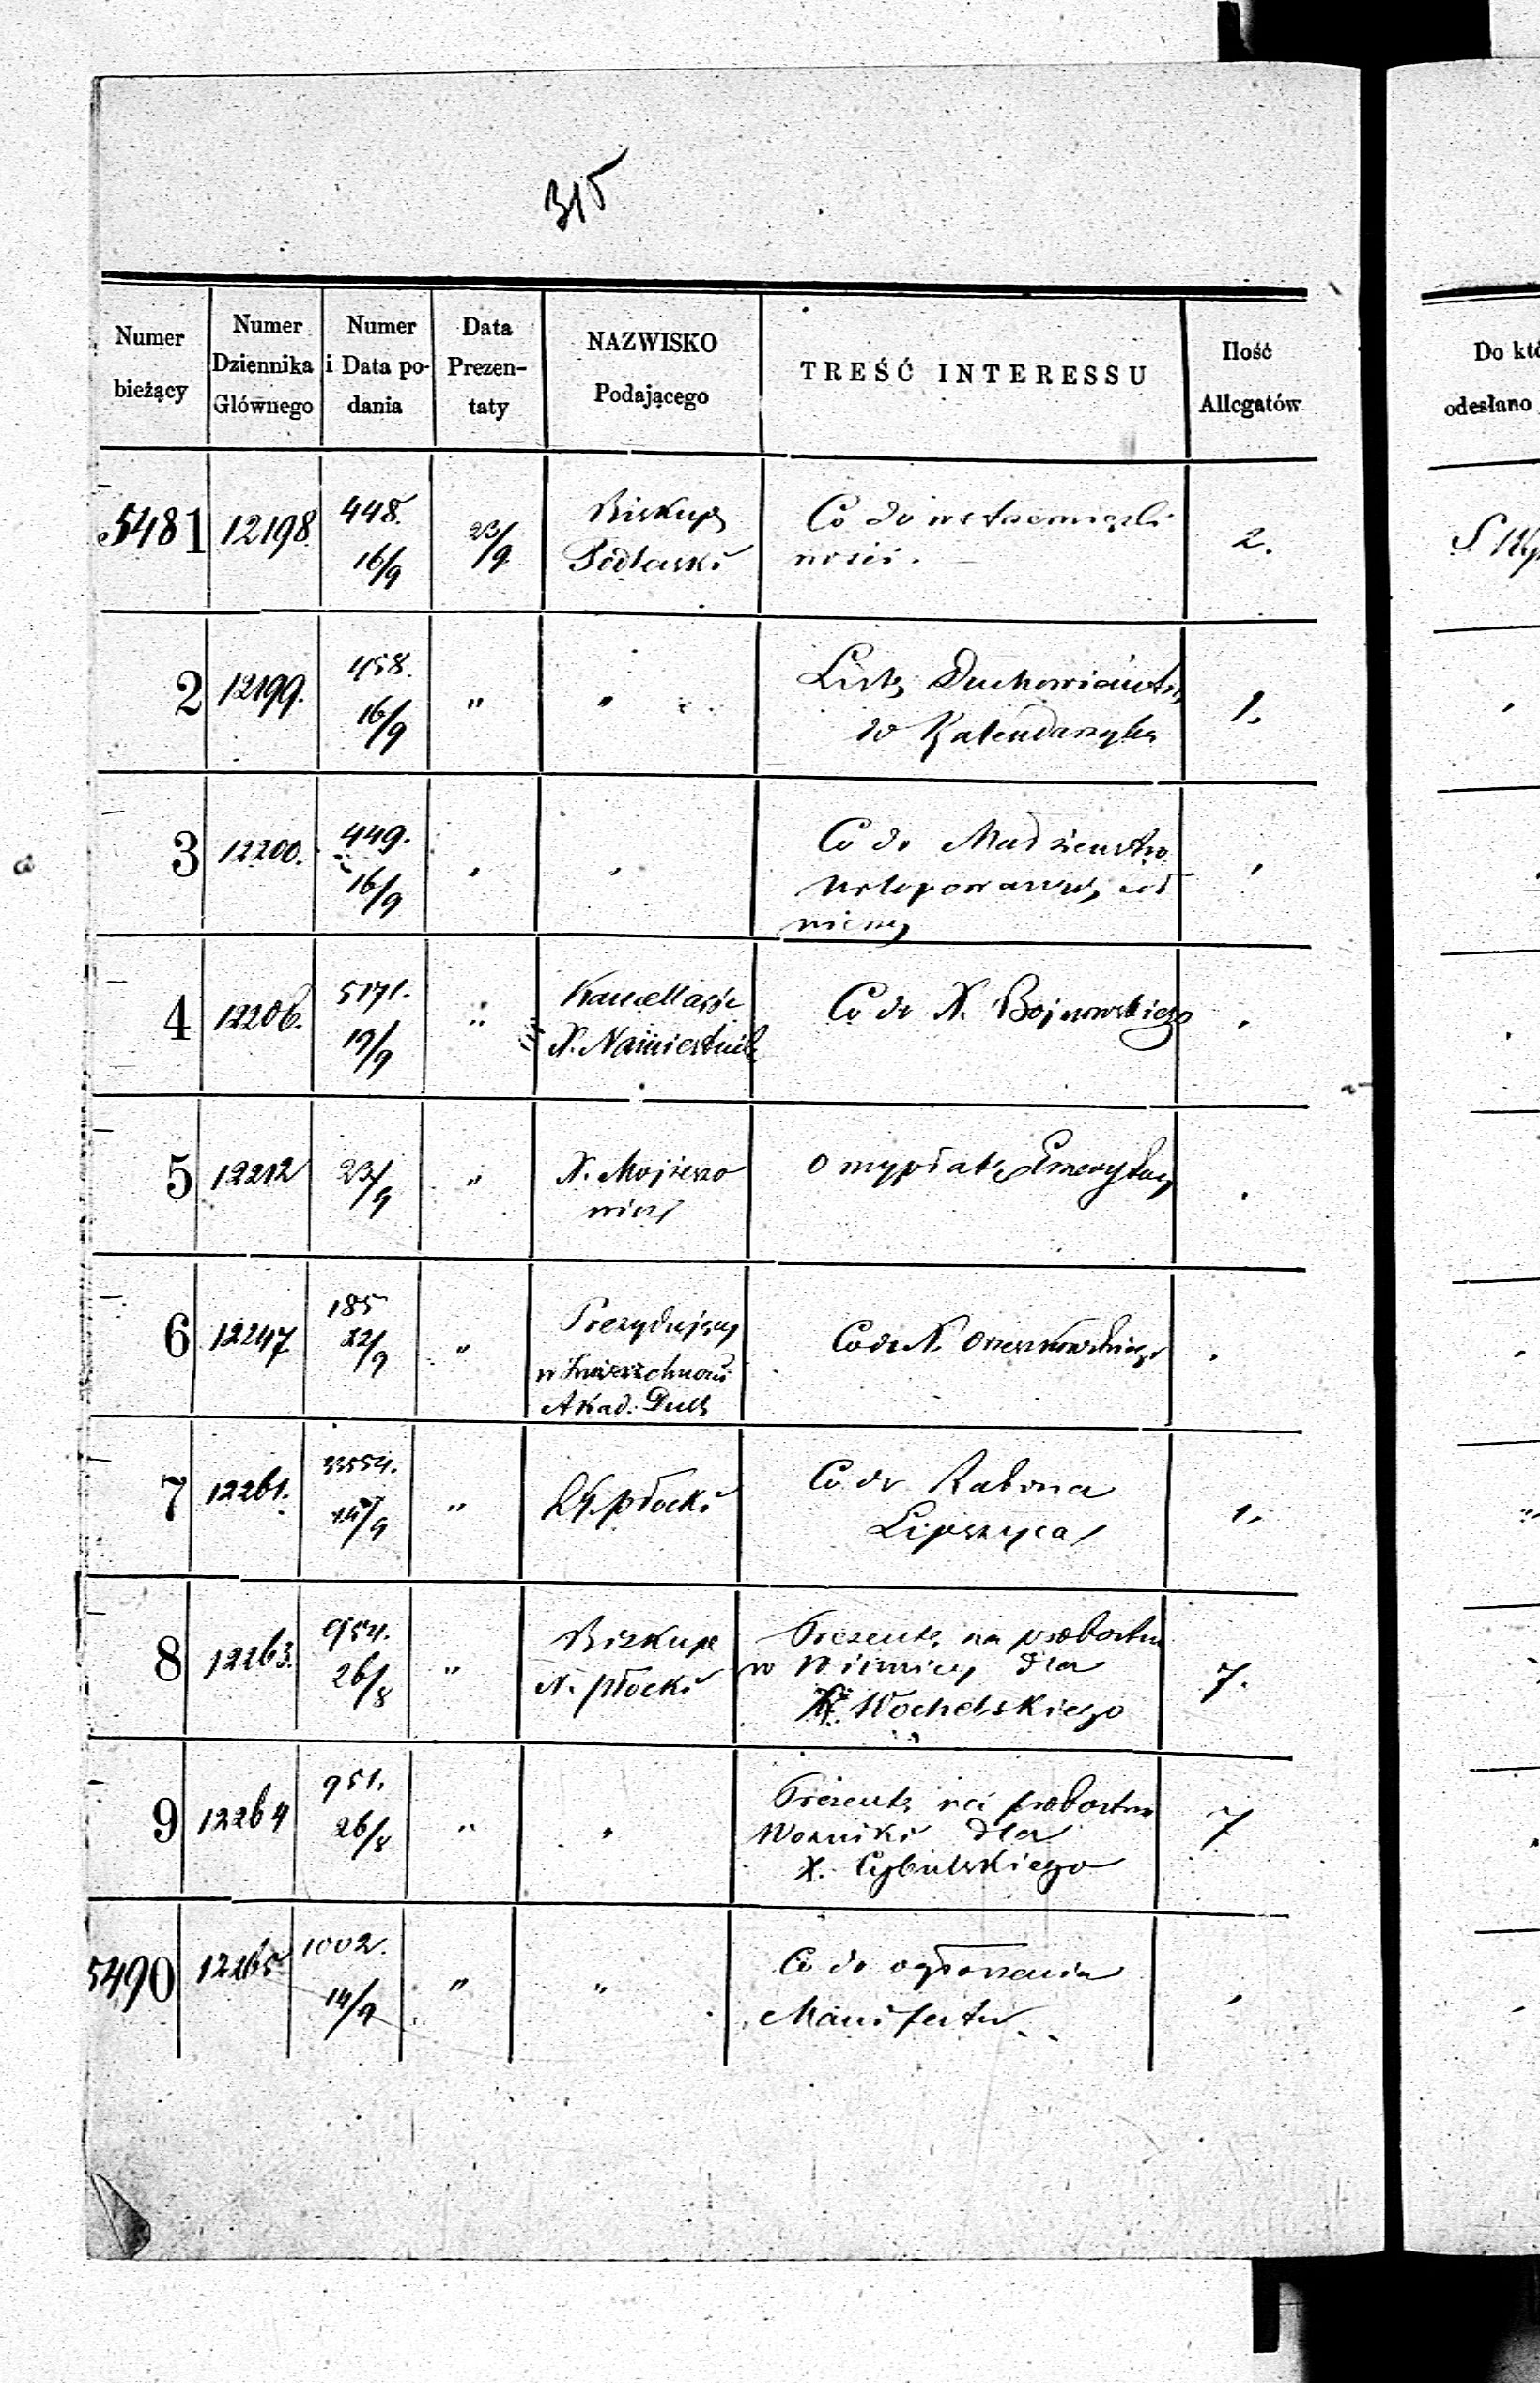 315
Numer bieżący | Numer Dziennika Głównego | Numer i Data podania | Data Prezentaty | NAZWISKO Podającego | TREŚĆ INTERESSU | Ilość Allegatów
Do któ
odesłano
5481 | 12198 | 448. 16/9 | 23/9 | Biskup Podlaski | Co do wstrzemięźli | 2.
nosci.
2 | 12199. | 458. 16/9 | " | " | Listę Duchowieństw | 1.
do Kalendarzyka
3 | 12200. | 449. 16/9 | " | " | Co do | "
4 | 12206. | 5171. 19/9 | " | Kancellarja | Co do X. Bojnowskiego | "
X. Namiestnik
5 | 12212 | 23/9 | " | X. Mojżeszo | O wypłatę Emerytury | "
wicz
6 | 12247 | 185 22/9 | " | Prezydujący | Co do X. | "
w Zwierzchnosci
Akad. Duch
7 | 12261. | 3554. /9 | " | płocki | Co do Rabina | 1.
Lipszyca
8 | 12263. | 954. 26/8 | " | Biskup | Prezentę na probostw | 7.
N. płocki | w dla
X. Wochelskiego
9 | 12264 | 951. 26/8 | " | " | Prezentę na probostwo | 7
Wozniki dla
X. Cybulskiego
5490 | 12265 | 1002. 14/9 | " | " | Co do ogłoszenia | "
Manifestu